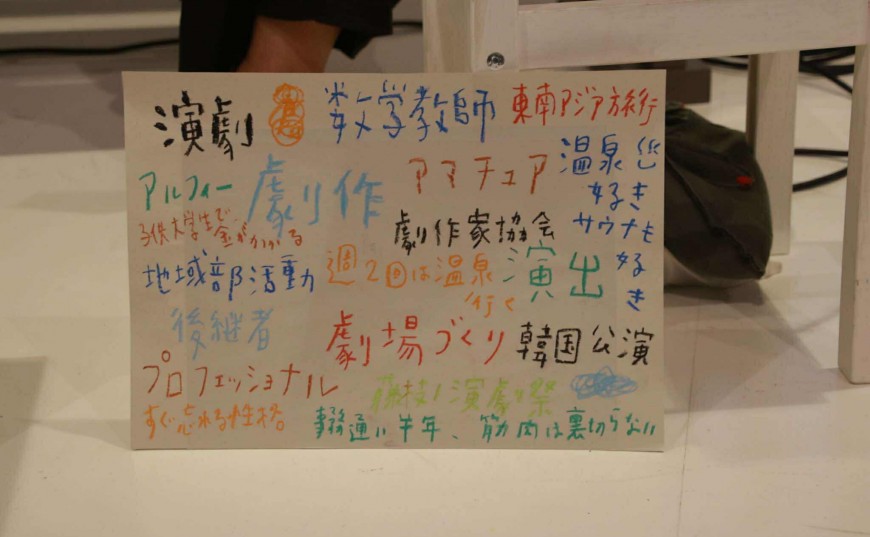 演劇
数学教師
東南アジア旅行
アルフィー
劇作
アマチュア
温泉も
好き
サウナも
好
き
子供大学生で金がかかる
劇作家協会
地域部活動
週2回は温泉
行く
演出
後継者
劇場づくり
韓国公演
プロフェッショナル
演劇祭
すぐ忘れる性格。
通い半年、筋肉は裏切らない